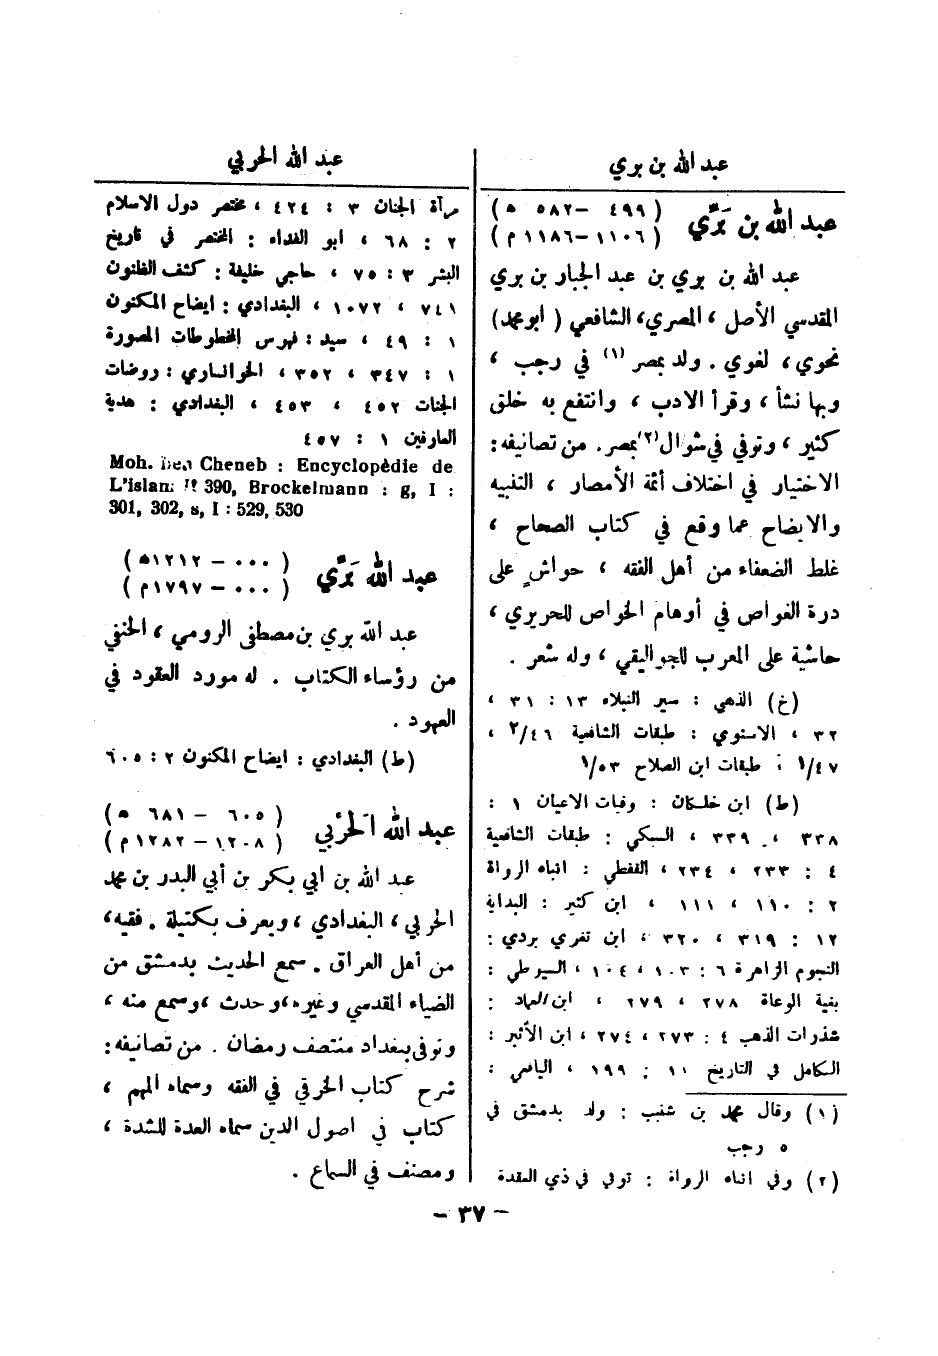 عبد الله بن بري
عبد الله بن بَرّي ( ٤٩٩ – ٥٨٢ ه )
( ١١٠٦ – ١١٨٦ م )
عبد الله بن بري بن عبد الجبار بن بري
المقدسي الأصل ، المصري، الشافعي ( ابو محمد)
نحوي ، لغوي . ولد بمصر (١) في رجب ،
وبها نشأ ، وقرأ الادب ، وانتفع به خلق
كثير ، وتوفي في شوال (٢) بمصر. من تصانيفه:
الاختيار في اختلاف أئمة الأمصار ، التنبيه
والايضاح عما وقع في كتاب الصحاح ،
غلط الضعفاء من أهل الفقه ، حواشٍ على
درة الغواص في أوهام الخواص للحريري ،
حاشية على المعرب للجواليقي ، وله شعر .
(خ) الذهبي : سير النبلاء ١٣ : ٣١ ،
٣٢ ، الاسنوي : طبقات الشافعية ٤٦/٢ ،
٤٧/١ ، طبقات ابن الصلاح ٥٣/١
(ط) ابن خلكان : وفيات الاعيان ١ :
٣٣٨ ، ٣٣٩ ، السبكي : طبقات الشافعية
٤ : ٢٣٣ ، ٢٣٤ ، القفطي : انباه الرواة
٢ : ١١٠ ، ١١١ ، ابن كثير : البداية
١٢ : ٣١٩ ، ٣٢٠ ، ابن تغري بردي :
النجوم الزاهرة ٦ : ١٠٣ ، ١٠٤ ، السيوطي :
بغية الوعاة ٢٧٨ ، ٢٧٩ ، ابن العماد :
شذرات الذهب ٤ : ٢٧٣ ، ٢٧٤ ، ابن الأثير :
الكامل في التاريخ ١٠ : ١٩٩ ، اليافعي :
(١) وقال محمد بن شنب : ولد بدمشق في
٥ رجب
(٢) وفي انباه الرواة : توفي في ذي القعدة
عبد الله الحربي
مرآة الجنان ٣ : ٤٢٤ ، مختصر دول الاسلام
٢ : ٦٨ ، ابو الفداء : المختصر في تاريخ
البشر ٣ : ٧٥ ، حاجي خليفة : كشف الظنون
٧٤١ ، ١٠٧٢ ، البغدادي : ايضاح المكنون
١ : ٤٩ ، سيد : فهرس المخطوطات المصورة
١ : ٣٤٧ ، ٣٥٢ ، الخوانساري : روضات
الجنات ٤٥٢ ، ٤٥٣ ، البغدادي : هدية
العارفين ١ : ٤٥٧
Moh. Ben Cheneb : Encyclopèdie de
L'islam II 390, Brockelmann : g, I :
301, 302, s, I : 529, 530
عبد الله بَرّي ( ٠٠٠ – ١٢١٢ه )
( ٠٠٠ – ١٧٩٧م )
عبد الله بري بن مصطفى الرومي ، الحنفي
من رؤساء الكتاب . له مورد العقود في
العهود .
(ط) البغدادي : ايضاح المكنون ٢ : ٦٠٥
عبد الله الحَرْبي ( ٦٠٥ – ٦٨١ ه )
( ١٢٠٨ – ١٢٨٢ م )
عبد الله بن ابي بكر بن أبي البدر بن محمد
الحربي ، البغدادي ، ويعرف بكتيلة . فقيه،
من أهل العراق . سمع الحديث بدمشق من
الضياء المقدسي وغيره، وحدث ، وسمع منه ،
وتوفي ببغداد منتصف رمضان . من تصانيفه:
شرح كتاب الخرقي في الفقه وسماه المهم ،
كتاب في اصول الدين سماه العدة للشدة ،
ومصنف في السماع .
– ٣٧ –